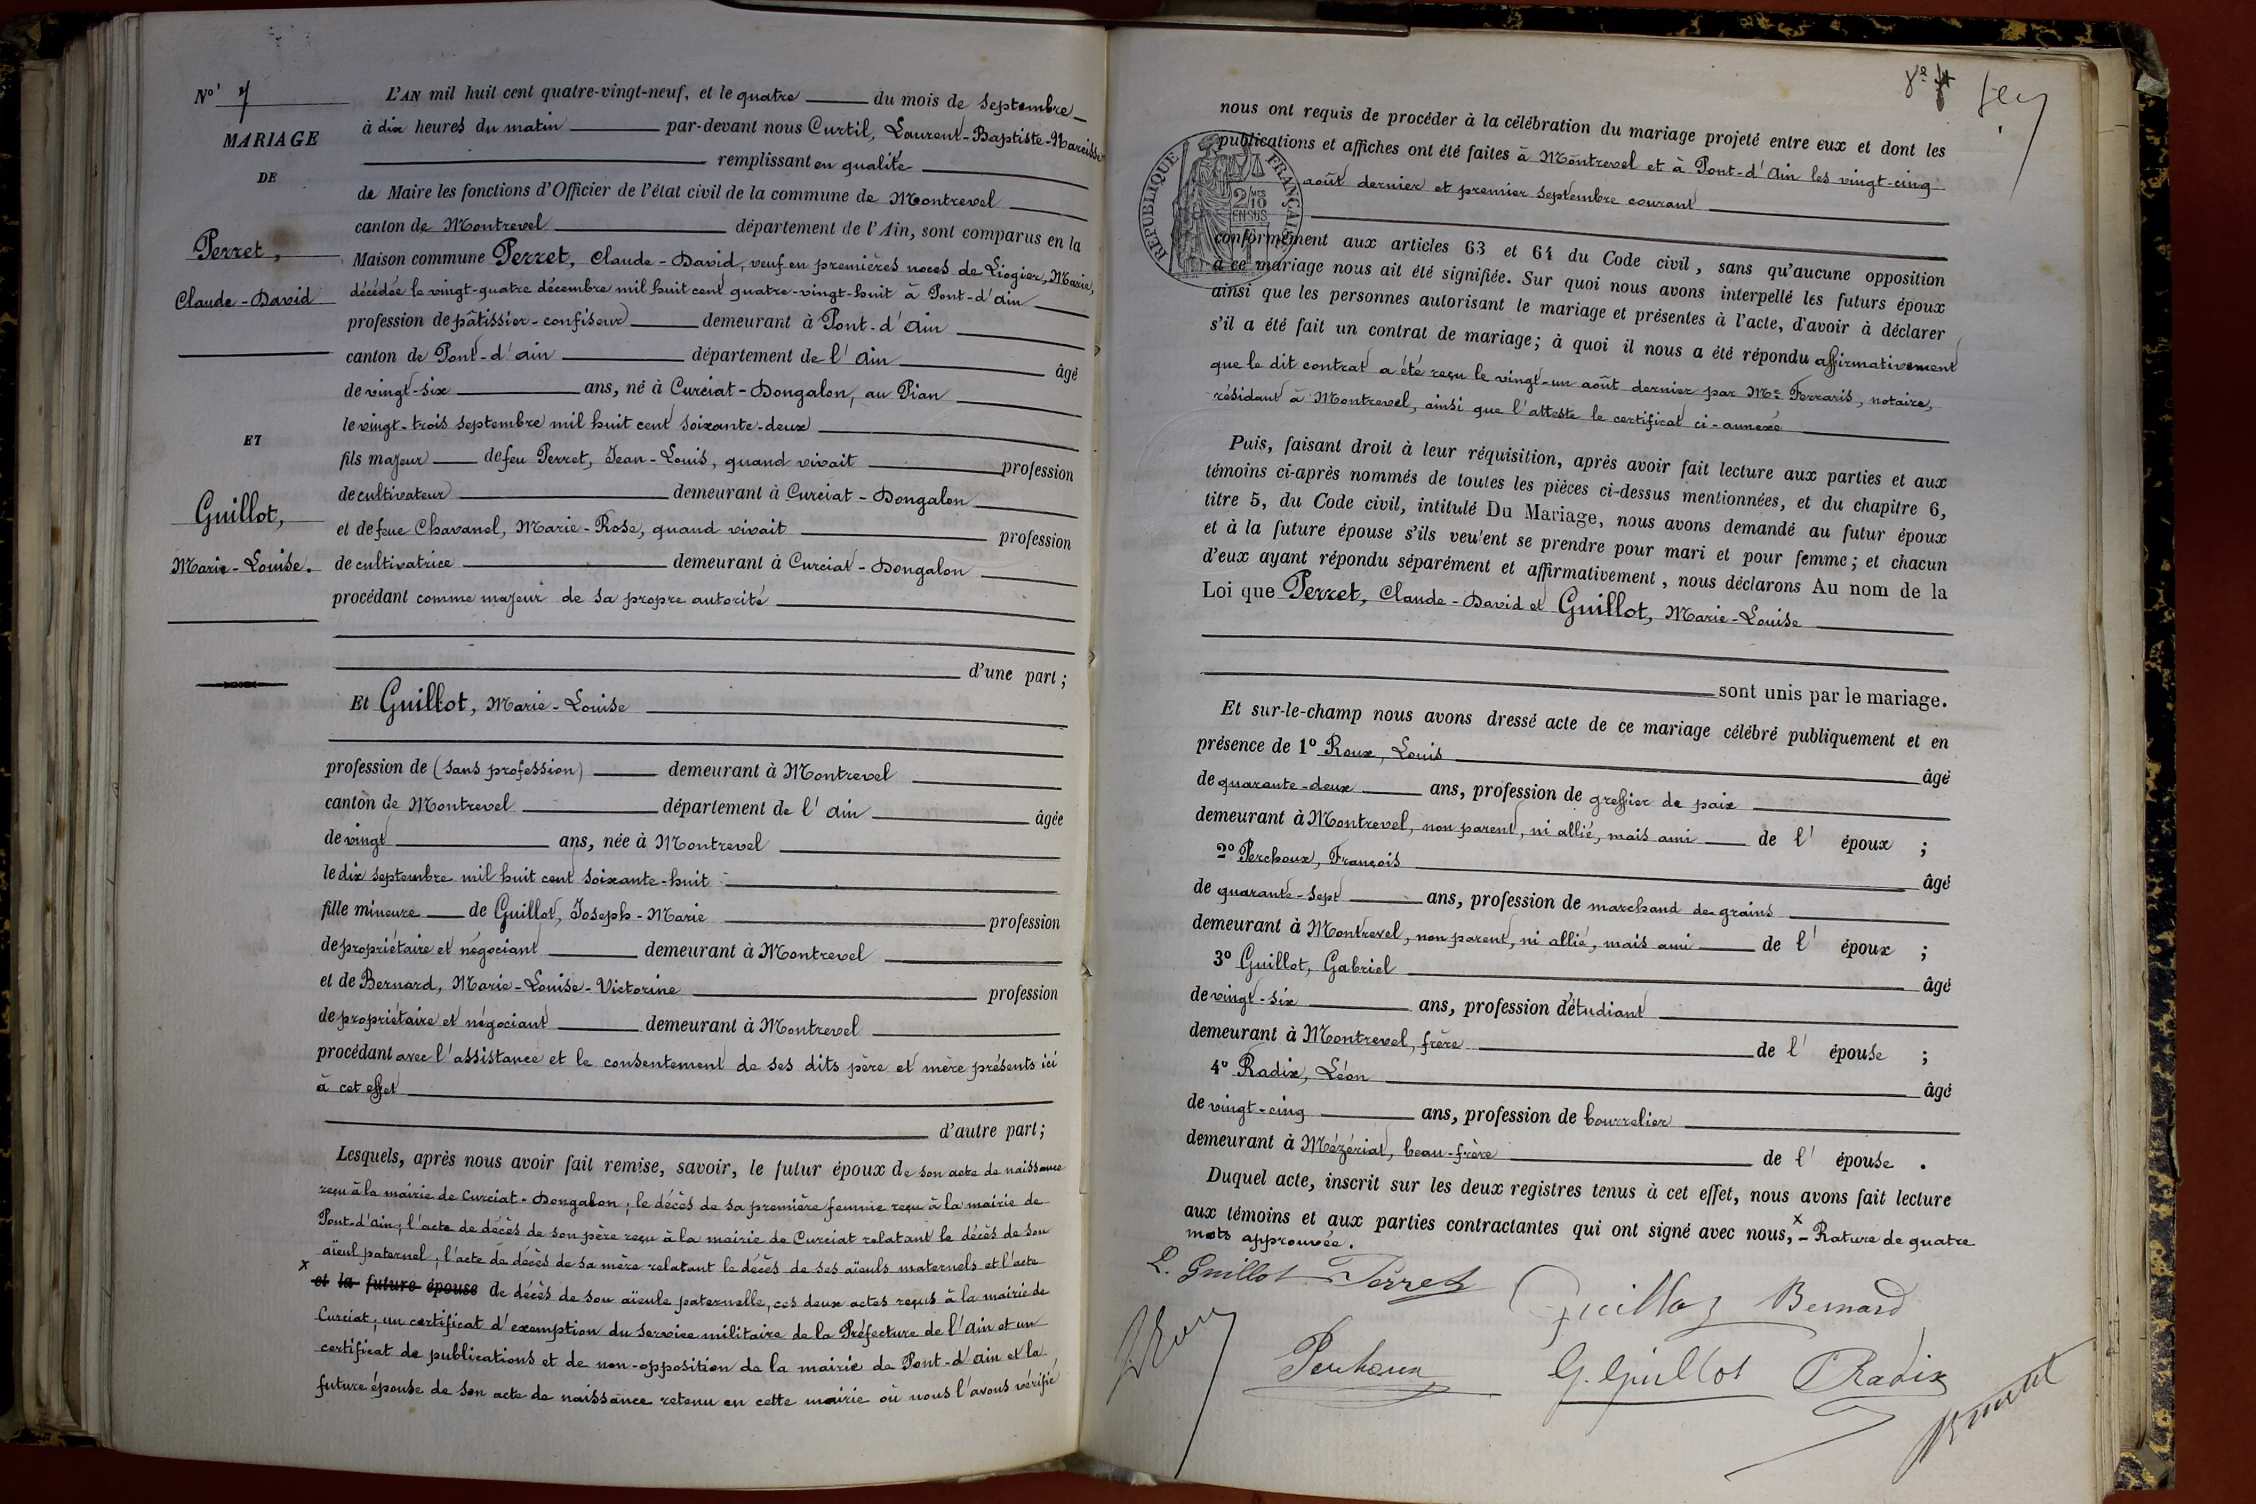 N° 7
MARIAGE
DE
Perret,
Claude-David
ET
Guillot,
Marie-Louise.
L'AN mil huit cent quatre-vingt-neuf, et le quatre du mois de septembre
à dix heures du matin par-devant nous Curtil, Laurent-Baptiste-Narcisse
remplissant en qualité
de Maire les fonctions d'Officier de l'état civil de la commune de Montrevel
canton de Montrevel département de l'Ain, sont comparus en la
Maison commune Perret, Claude-David, veuf en premières noces de Liogier, Marie,
décédée le vingt-quatre décembre mil huit cent quatre-vingt-huit à Pont-d'Ain
profession de pâtissier-confiseur demeurant à Pont-d'Ain
canton de Pont-d'Ain département de l'Ain âgé
de vingt-six ans, né à Curciat-Dongalon, au Pian
le vingt-trois septembre mil huit cent soixante-deux
fils majeur de feu Perret, Jean-Louis, quand vivait profession
de cultivateur demeurant à Curciat-Dongalon
et de feue Chavanel, Marie-Rose, quand vivait profession
de cultivatrice demeurant à Curciat-Dongalon
procédant comme majeur de sa propre autorité
d'une part;
Et Guillot, Marie-Louise
profession de (sans profession) demeurant à Montrevel
canton de Montrevel département de l'Ain âgée
de vingt ans, née à Montrevel
le dix septembre mil huit cent soixante-huit
fille mineure de Guillot, Joseph-Marie profession
de propriétaire et négociant demeurant à Montrevel
et de Bernard, Marie-Louise-Victorine profession
de propriétaire et négociant demeurant à Montrevel
procédant avec l'assistance et le consentement de ses dits père et mère présents ici
à cet effet
d'autre part;
Lesquels, après nous avoir fait remise, savoir, le futur époux de son acte de naissance
reçu à la mairie de Curciat-Dongalon; le décès de sa première femme reçu à la mairie de
Pont-d'Ain; l'acte de décès de son père reçu à la mairie de Curciat relatant le décès de son
aïeul paternel; l'acte de décès de sa mère relatant le décès de ses aïeuls maternels et l'acte
x et la future épouse de décès de son aïeule paternelle, ces deux actes reçus à la mairie de
Curciat; un certificat d'exemption du service militaire de la Préfecture de l'Ain et un
certificat de publications et de non-opposition de la mairie de Pont-d'Ain et la
future épouse de son acte de naissance retenu en cette mairie où nous l'avons vérifié
nous ont requis de procéder à la célébration du mariage projeté entre eux et dont les
publications et affiches ont été faites à Montrevel et à Pont-d'Ain les vingt-cinq
août dernier et premier septembre courant
RÉPUBLIQUE FRANÇAISE
2/10 MES
EN SUS
conformément aux articles 63 et 64 du Code civil, sans qu'aucune opposition
à ce mariage nous ait été signifiée. Sur quoi nous avons interpellé les futurs époux
ainsi que les personnes autorisant le mariage et présentes à l'acte, d'avoir à déclarer
s'il a été fait un contrat de mariage; à quoi il nous a été répondu affirmativement
que le dit contrat a été reçu le vingt-un août dernier par Me Ferraris, notaire,
résidant à Montrevel, ainsi que l'atteste le certificat ci-annexé
Puis, faisant droit à leur réquisition, après avoir fait lecture aux parties et aux
témoins ci-après nommés de toutes les pièces ci-dessus mentionnées, et du chapitre 6,
titre 5, du Code civil, intitulé Du Mariage, nous avons demandé au futur époux
et à la future épouse s'ils veulent se prendre pour mari et pour femme; et chacun
d'eux ayant répondu séparément et affirmativement, nous déclarons Au nom de la
Loi que Perret, Claude-David et Guillot, Marie-Louise
sont unis par le mariage.
Et sur-le-champ nous avons dressé acte de ce mariage célébré publiquement et en
présence de 1° Roux, Louis âgé
de quarante-deux ans, profession de greffier de paix
demeurant à Montrevel, non parent, ni allié, mais ami de l'époux ;
2° Perchoux, François âgé
de quarante-sept ans, profession de marchand de grains
demeurant à Montrevel, non parent, ni allié, mais ami de l'époux ;
3° Guillot, Gabriel âgé
de vingt-six ans, profession d'étudiant
demeurant à Montrevel, frère de l'épouse ;
4° Radix, Léon âgé
de vingt-cinq ans, profession de bourrelier
demeurant à Mézériat, beau-frère de l'épouse .
Duquel acte, inscrit sur les deux registres tenus à cet effet, nous avons fait lecture
aux témoins et aux parties contractantes qui ont signé avec nous, x - Rature de quatre
mots approuvée.
L. Guillot Perret Guillot Bernard
Perchoux G. Guillot Radix